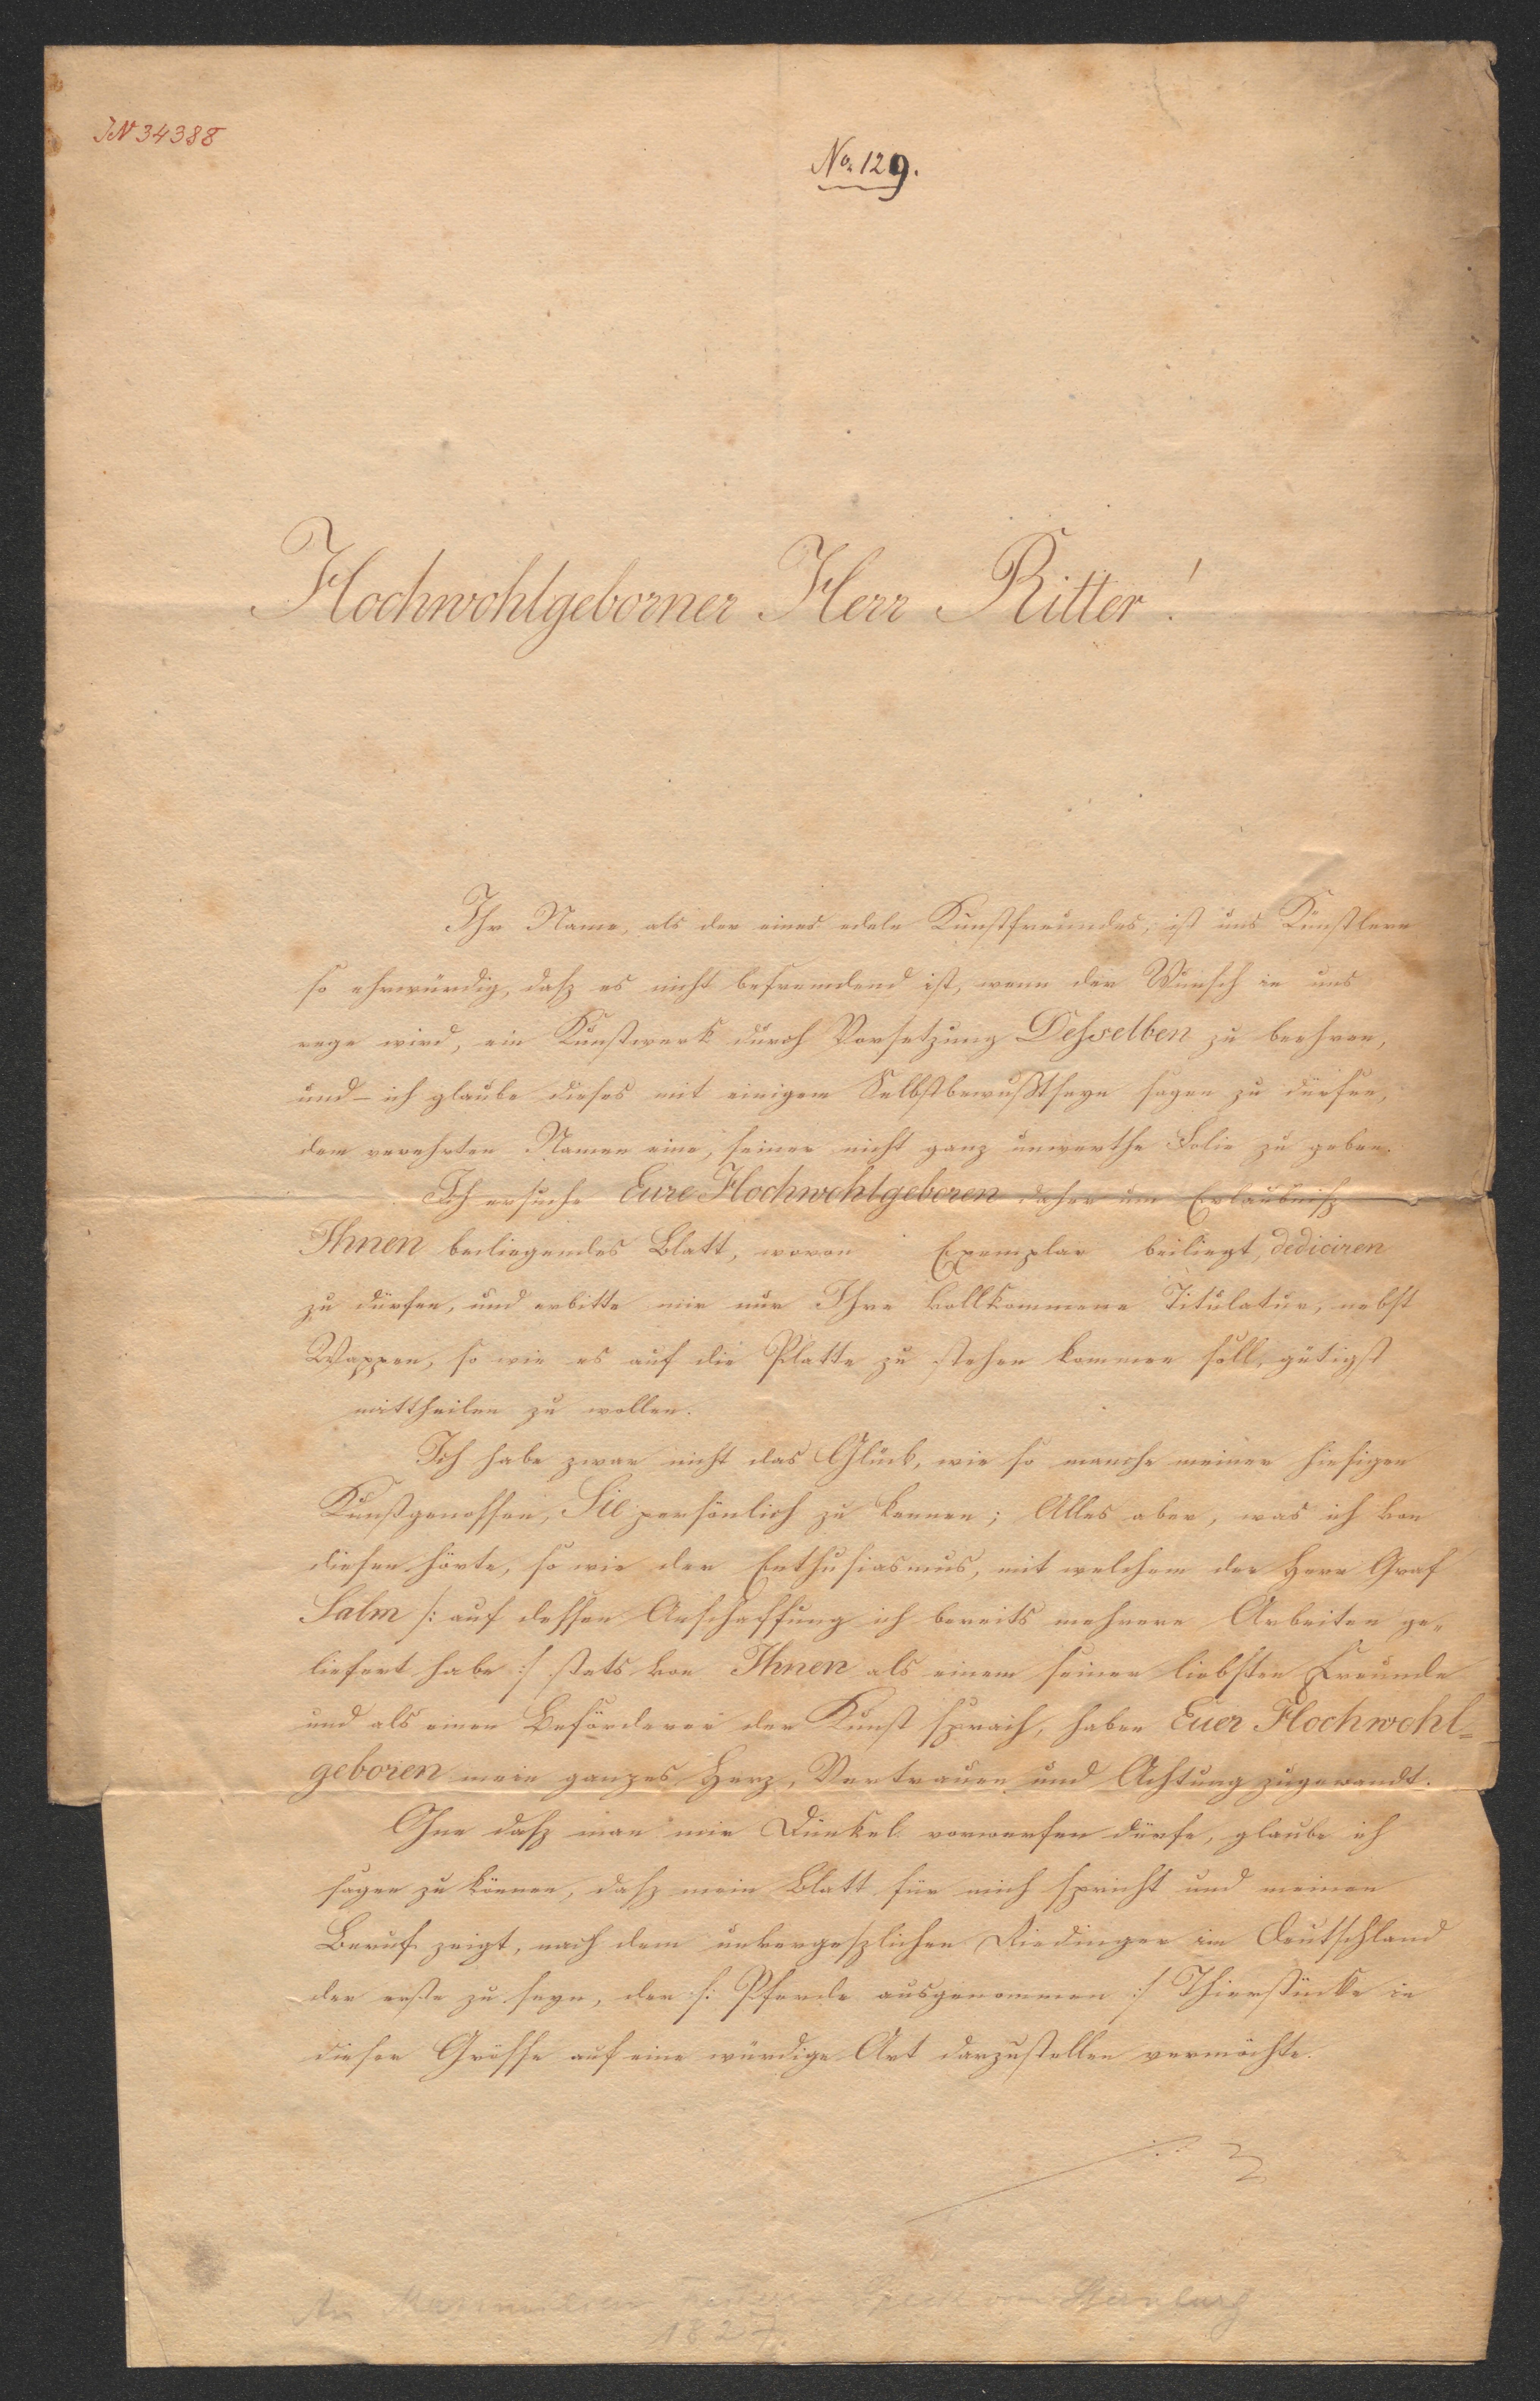 IN 34388
No. 129.
Hochwohlgeborner Herr Ritter!
Ihr Name, als der eines edeln Kunstfreundes, ist uns Künstlern
so ehrwürdig, dasz es nicht befremdend ist, wenn der Wunsch in uns
rege wird, ein Kunstwerk durch Vorsetzung Deßselben zu beehren,
und – ich glaube dieses mit einigem Selbstbewußtseyn sagen zu dürfen,
dem verehrten Namen eine, seiner nicht ganz unwerthe Folie zu geben.
Ich ersuche Eure Hochwohlgeboren daher um Erlaubnisz
Ihnen beiliegendes Blatt, wovon Exemplar beiliegt, dediciren
zu dürfen, und erbitte mir nur Ihre vollkommene Titulatur, nebst
Wappen, so wie es auf die Platte zu stehen kommen soll, gütigst
mittheilen zu wollen.
Ich habe zwar nicht das Glück, wie so manche meiner hiesigen
Kunstgenossen, Sie persönlich zu kennen; Alles aber, was ich von
diesen hörte, so wie der Enthusiasmus, mit welchem der Herr Graf
Salm /: auf dessen Anschaffung ich bereits mehrere Arbeiten ge-
liefert habe :/ stets von Ihnen als einem seiner liebsten Freunde
und als einen Beförderer der Kunst sprach, haben Euer Hochwohl-
geboren mein ganzes Herz, Vertrauen und Achtung zugewandt.
Ohne dasz man mir Dünkel vorwerfen dürfe, glaube ich
sagen zu können, dasz mein Blatt für mich spricht und meinen
Beruf zeigt, nach dem unvergeszlichen Riedinger in Deutschland
der erste zu seyn, der /: Pferde ausgenommen :/ Thierstücke in
dieser Grösse auf eine würdige Art darzustellen vermöchte.
An Maximilian Freiherr Speck von Sternburg
1827.